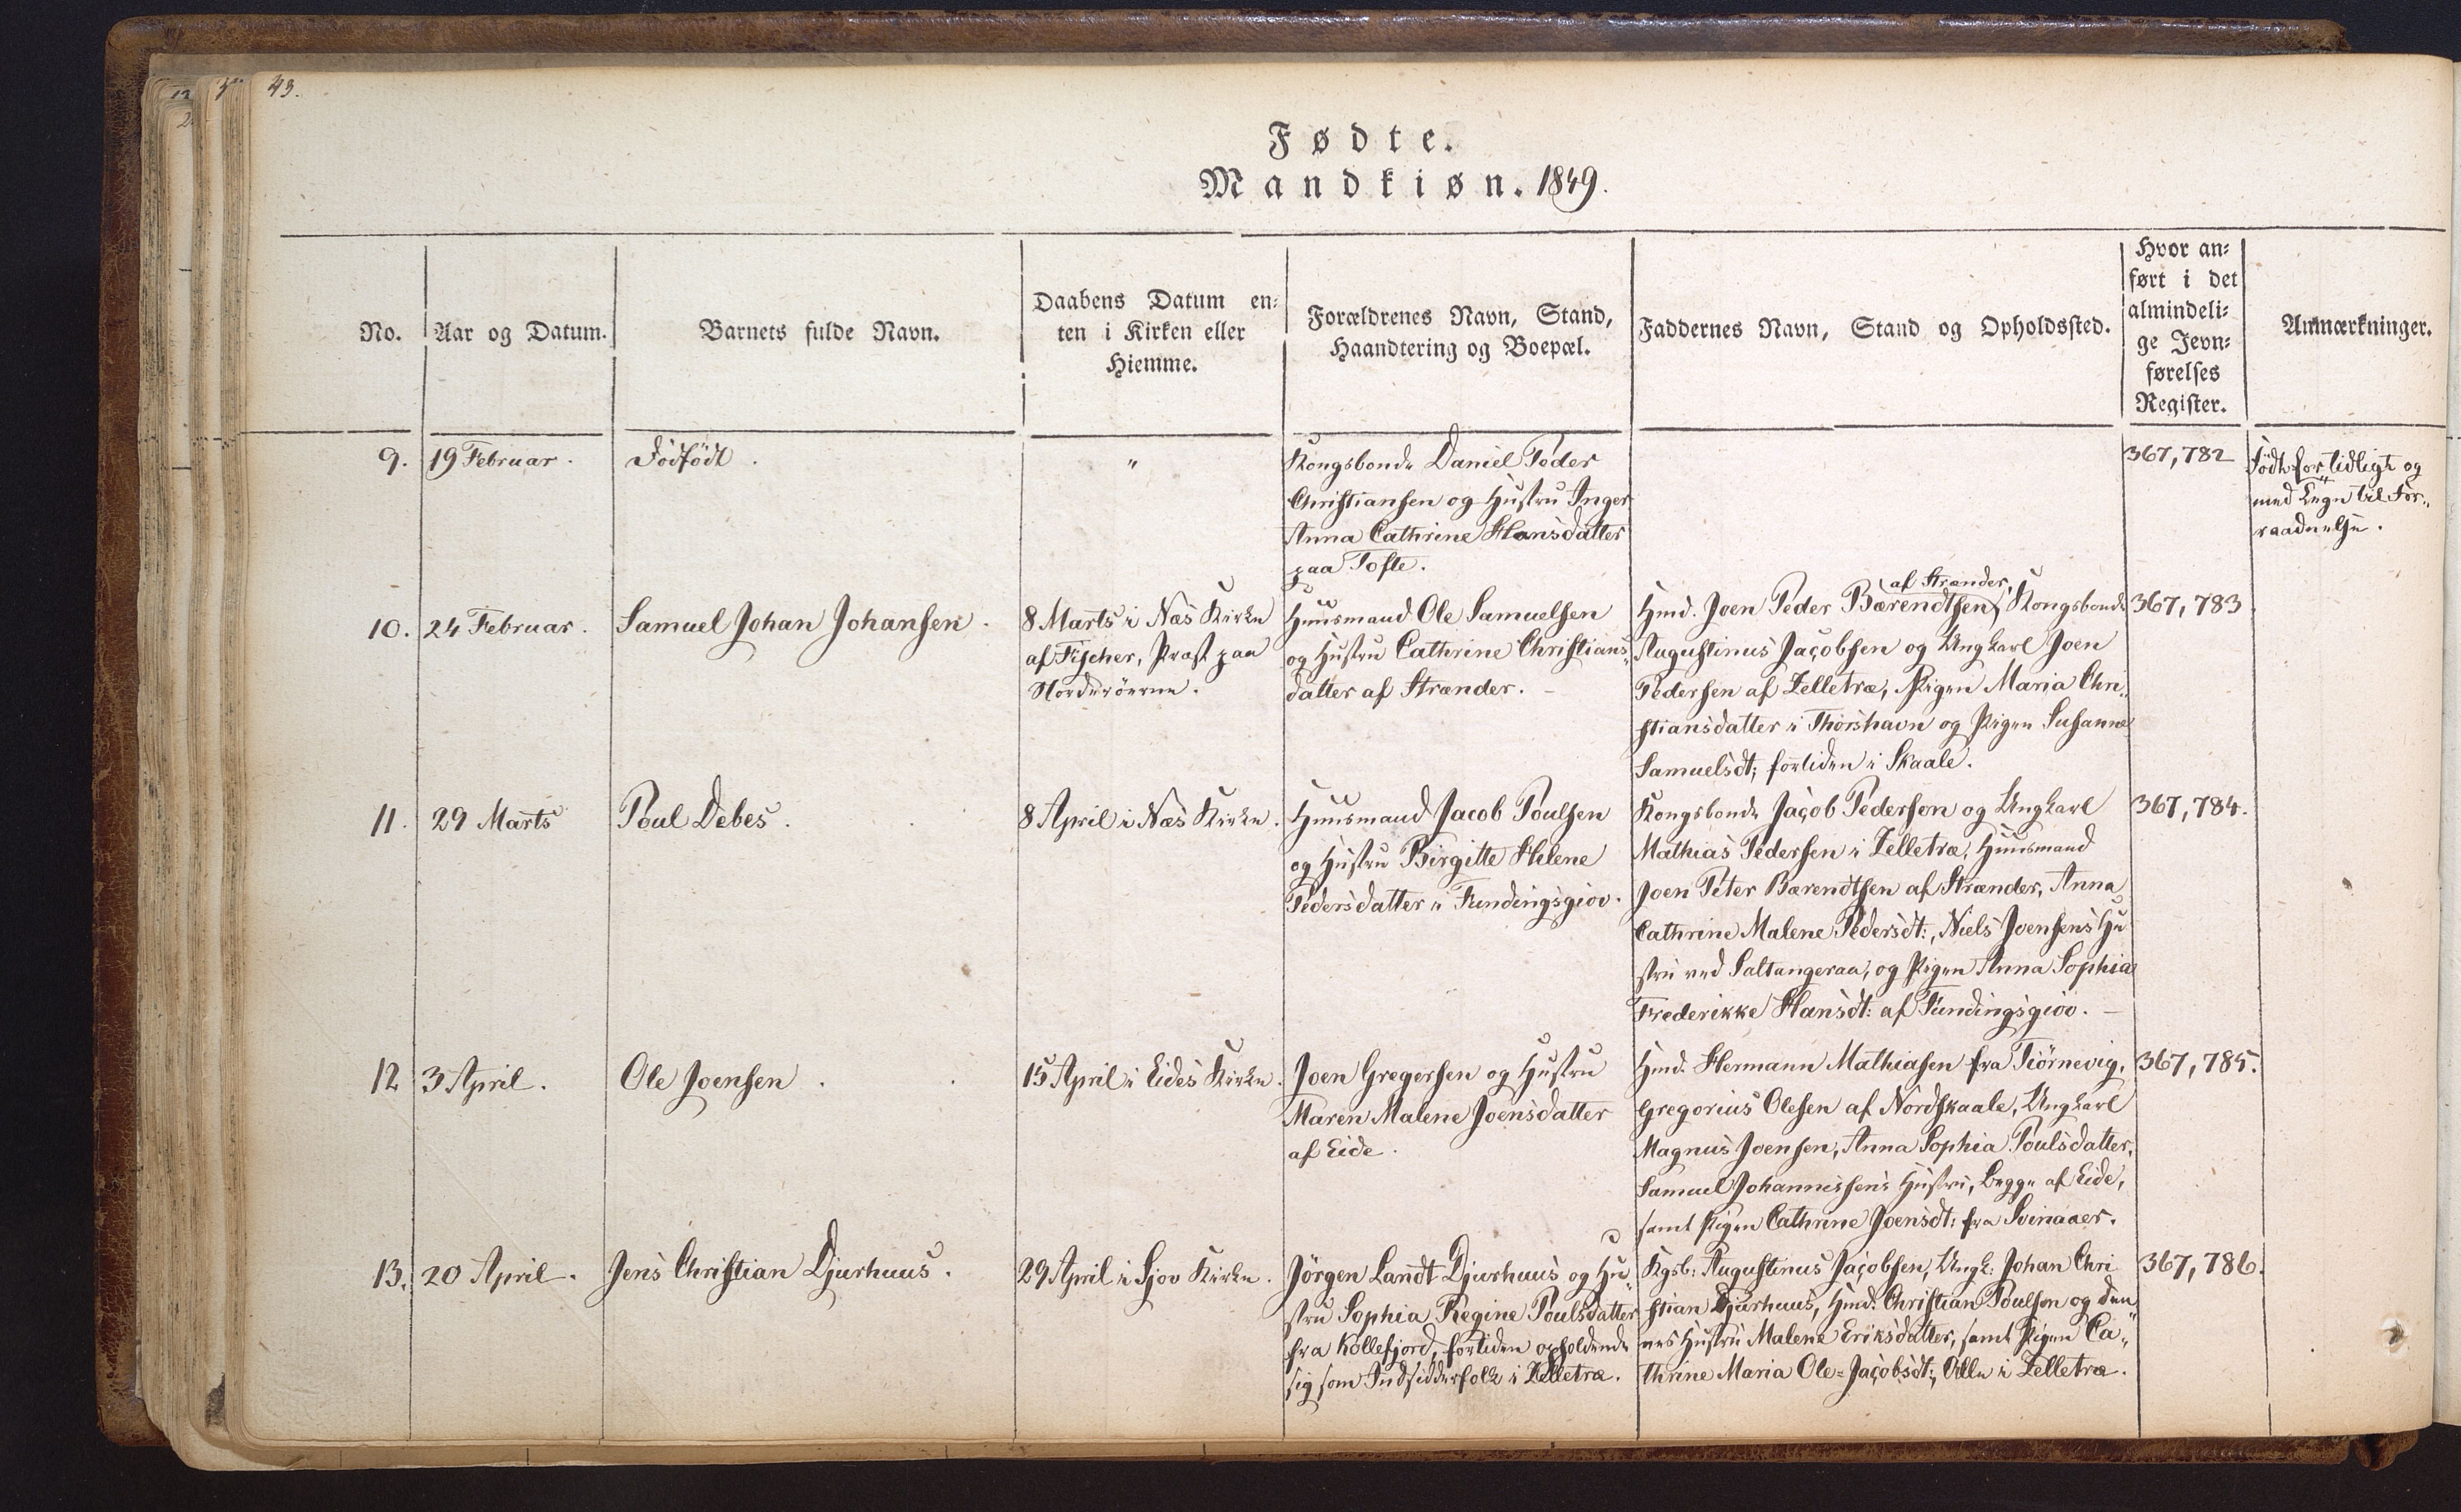 43.
Fødte.
Mandkiøn. 1849.
No.
Aar og Datum.
Barnets fulde Navn.
Daabens Datum en-
ten i Kirken eller
Hiemme.
Forældrenes Navn, Stand,
Haandtering og Boepæl.
Faddernes Navn, Stand og Opholdssted.
Hvor an-
ført i det
almindeli-
ge Jevn-
førelses
Register.
Anmærkninger.
9.
19 Februar.
Dödfödt.
"
Kongsbonde Daniel Peder
Christiansen og Hustru Inger
Anna Cathrine Hansdatter
paa Tofte.
367, 782
Födt for tidligt og
med Tegn til For-
raadnelse.
10.
24 Februar.
Samuel Johan Johansen.
8 Marts i Næs Kirke
af Fischer, Præst paa
Norderöerne.
Huusmand Ole Samuelsen
og Hustru Cathrine Christians-
datter af Strænder. -
af Strænder,
Hmd. Joen Peder Bærendtsen, Kongsbonde
Augustinus Jacobsen og Ungkarl Joen
Pedersen af Zelletræ, Pigen Maria Chri-
stiansdatter i Thorshavn og Pigen Susanne
Samuelsdt; fortiden i Skaale.
367, 783
11.
29 Marts
Poul Debes.
8 April i Næs Kirke.
Huusmand Jacob Poulsen
og Hustru Birgitte Helene
Pedersdatter i Fundingsgiov.
Kongsbonde Jacob Pederson og Ungkarl
Mathias Pedersen i Zelletræ, Huusmand
Joen Peter Bærendtsen af Strænder, Anna
Cathrine Malene Pedersdt:, Niels Joensens Hu
stru ved Saltangeraa, og Pigen Anna Sophia
Frederikke Hansdt: af Fundingsgiov. -
367, 784.
12
3 April.
Ole Joensen.
15 April i Eides Kirke.
Joen Gregersen og Hustru
Maren Malene Joensdatter
af Eide.
Hmd. Hermann Mathiasen fra Tiörnevig,
Gregorius Olesen af Nordskaale, Ungkarl
Magnus Joensen, Anna Sophia Poulsdatter,
Samuel Johannissens Hustru, begge af Eide,
samt Pigen Cathrine Joensdt: fra Svinaaer.
367, 785.
13.
20 April.
Jens Christian Djurhuus.
29 April i Sjov Kirke.
Jörgen Landt Djurhuus og Hu-
stru Sophia Regine Poulsdatter
fra Kollefjord, fortiden opholdende
sig som Indsidderfolk i Zelletræ.
Kgsb: Augustinus Jacobsen, Ungk: Johan Chri
stian Djurhuus, Hmd. Christian Poulson og den-
nes Hustru Malene Eriksdatter, samt Pigen Ca-
thrine Maria Ole-Jacobsdt; Alle i Zelletræ.
367, 786.